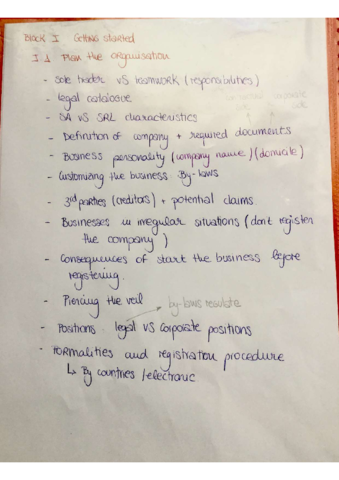 Block I Getting started
I.1 Plan the organisation
- Sole trader vs teamwork (responsibilities)
- Legal catalogue
- SA vs SRL characteristics
- Definition of company + required documents
- Business personality (company name) (domicile)
- Customizing the business By-laws
- 3rd parties (creditors) + potential claims
- Businesses in irregular situations (don't register
the company)
- Consequences of start the business before
registering.
- Piercing the veil
by-laws regulate
- Positions legal vs corporate positions
- Formalities and registration procedure
↳ By countries / electronic